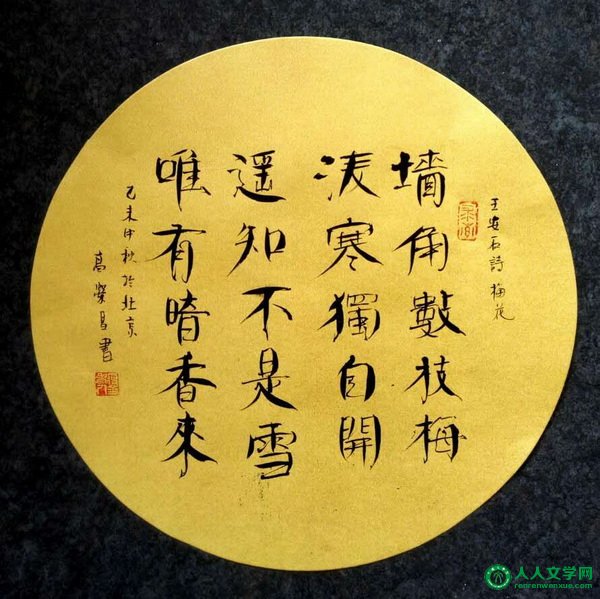 王安石詩梅花
墻角數枝梅
凌寒獨自開
遥知不是雪
唯有暗香來
乙未仲秋於北京
高榮昌書
人人文学网
renrenwenxue.com